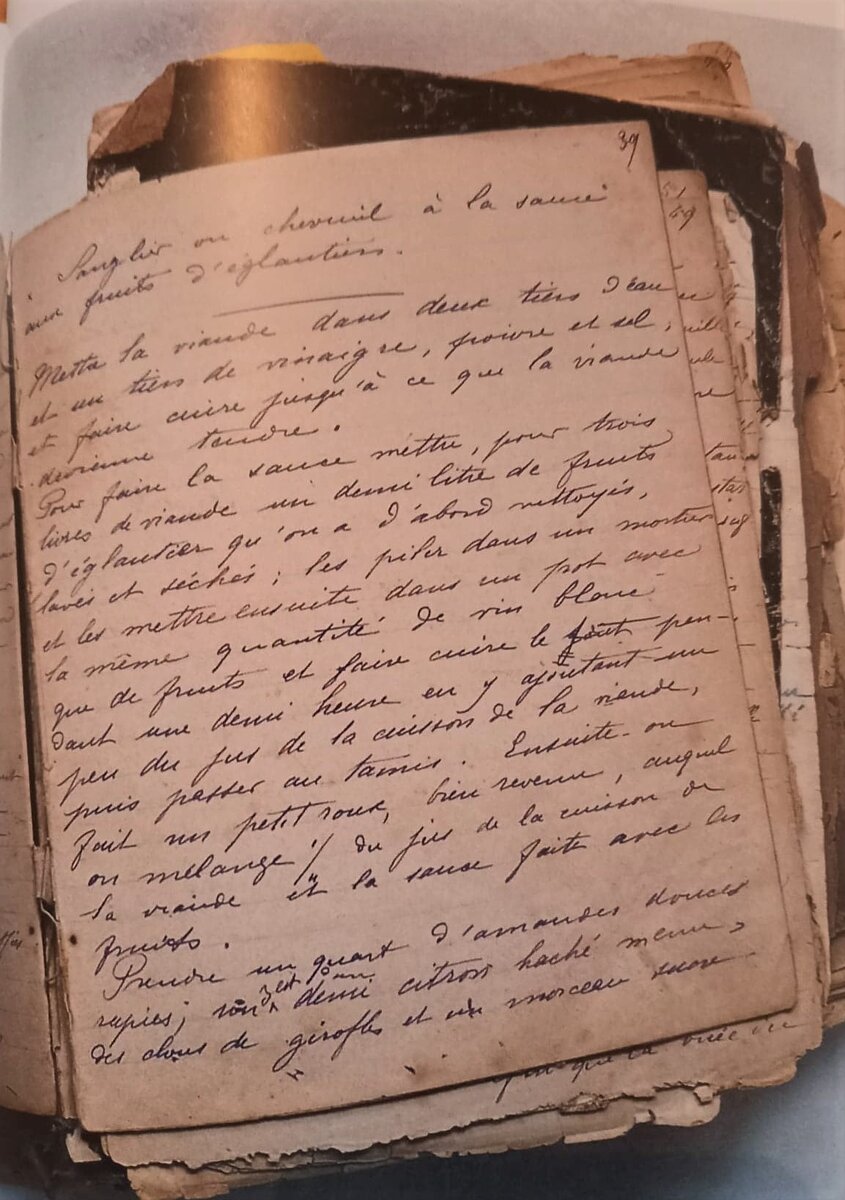 39
Sanglier ou chevreuil à la sauce
aux fruits d'églantiers.
Mettre la viande dans deux tiers d'eau
et un tiers de vinaigre, poivre et sel,
et faire cuire jusqu'à ce que la viande
devienne tendre.
Pour faire la sauce mettre, pour trois
livres de viande un demi litre de fruits
d'églantier qu'on a d'abord nettoyés,
lavés et séchés; les piler dans un mortier
et les mettre ensuite dans un pot avec
la même quantité de vin blanc
que de fruits et faire cuire le tout pen-
dant une demi heure en y ajoutant un
peu du jus de la cuisson de la viande,
puis passer au tamis. Ensuite on
fait un petit roux, bien revenu, auquel
on mélange du jus de la cuisson de
la viande et la sauce faite avec les
fruits.
Prendre un quart d'amandes douces
rapies; zest d'un demi citron haché menu,
des clous de girofles et un morceau sucre